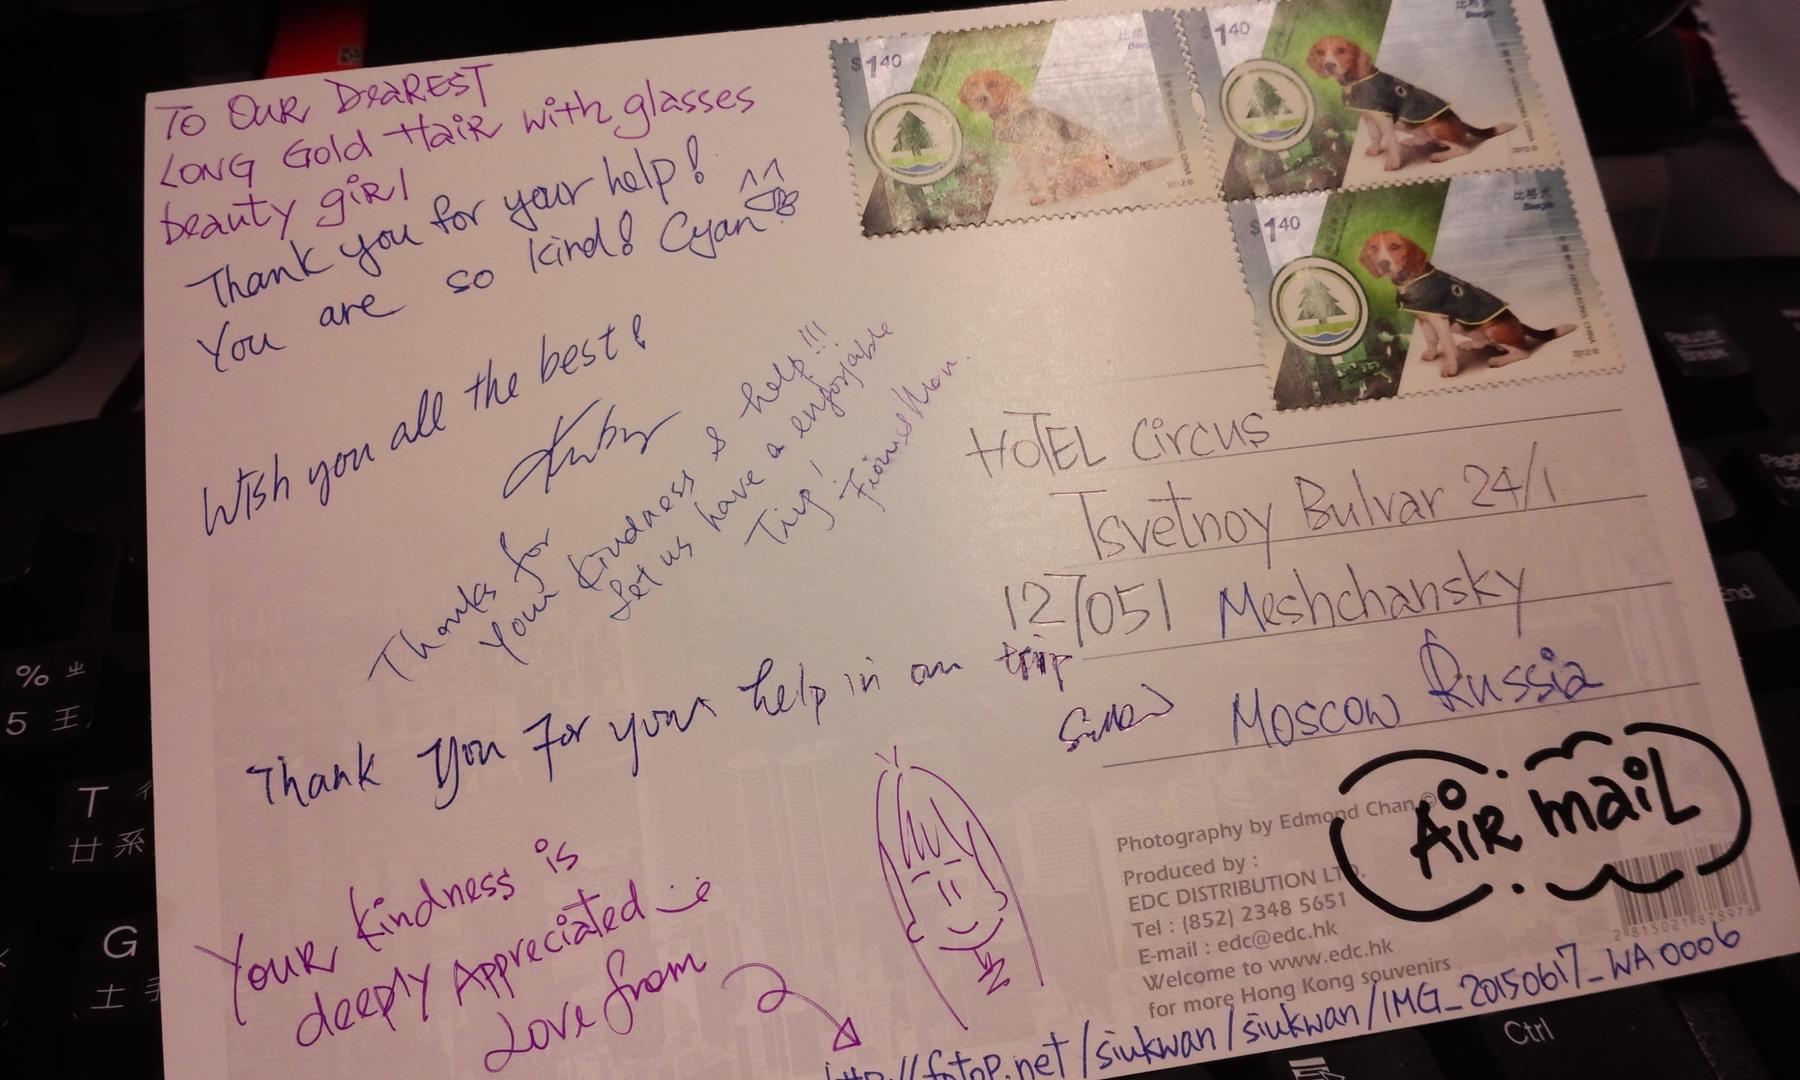 TO OUR DEAREST
LONG Gold Hair with glasses
beauty girl
Thank you for your help!
You are so kind! Cyan
Wish you all the best!
Thanks for
your kindness & help!!!
Let us have a enjorjable
Trip!
Thank you for your help in our trip
Your kindness is
deeply Appreciated
Love from
http://fotop.net/siukwan/siukwan/IMG_20150617_WA0006
$1.40
比格犬
Beagle
HONG KONG, CHINA
2012
$1.40
比格犬
Beagle
HONG KONG, CHINA
2012
$1.40
比格犬
Beagle
HONG KONG, CHINA
2012
HOTEL Circus
Tsvetnoy Bulvar 24/1
127051 Meshchansky
Moscow Russia
AiR maiL
Photography by Edmond Chan ©
Produced by :
EDC DISTRIBUTION LTD.
Tel : (852) 2348 5651
E-mail : edc@edc.hk
Welcome to www.edc.hk
for more Hong Kong souvenirs
%
5
T
廿
G
土
Pause
Break
End
Ctrl